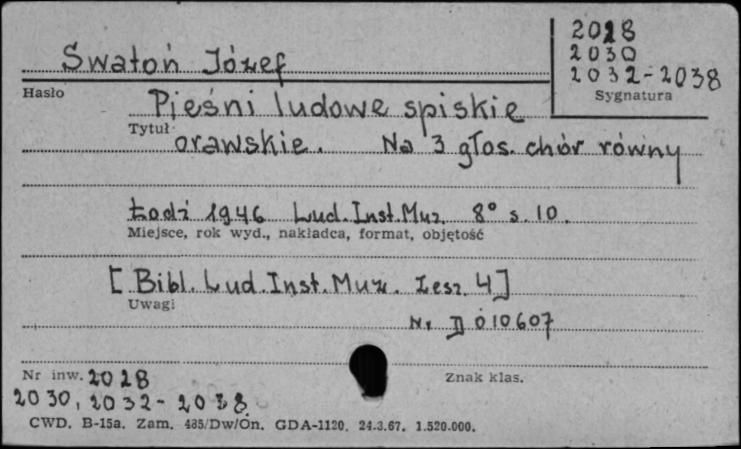 2028
2030
2032-2038
Sygnatura
Swatoń Józef
Hasło
Pieśni ludowe spiskie
Tytuł
orawskie. Na 3 głos. chór równy
Łodź 1946 Lud. Inst. Muz. 8° s. 10.
Miejsce, rok wyd., nakładca, format, objętość
[Bibl. Lud. Inst. Muz. Zesz. 4]
Uwagi
Nr D 010607
Nr inw. 2028
Znak klas.
2030, 2032-2038
CWD. B-15a. Zam. 485/Dw/On. GDA-1120. 24.3.67. 1.520.000.